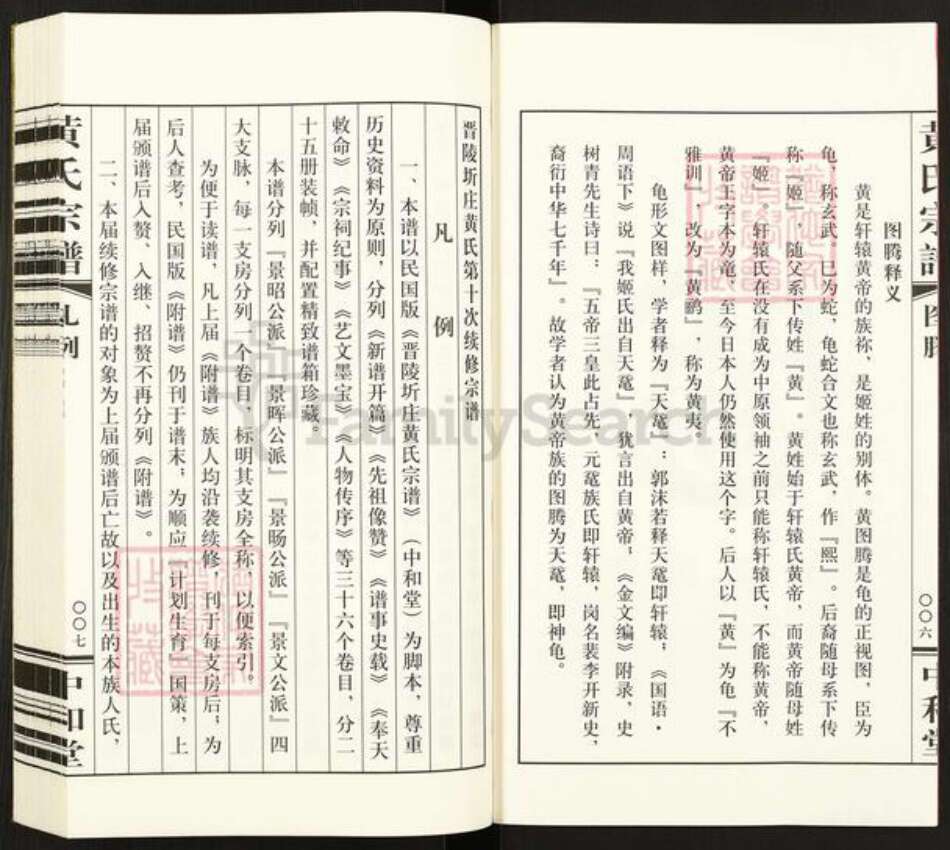 黄氏宗谱
图腾
〇〇六
中和堂
图腾释义
黄是轩辕黄帝的族祢，是姬姓的别体。黄图腾是龟的正视图，臣为
龟，称玄武，巳为蛇，龟蛇合文也称玄武，作『熙』。后裔随母系下传
称『姬』，随父系下传姓『黄』。黄姓始于轩辕氏黄帝，而黄帝随母姓
『姬』。轩辕氏在没有成为中原领袖之前只能称轩辕氏，不能称黄帝，
黄帝王字本为黾，至今日本人仍然使用这个字。后人以『黄』为龟『不
雅训』，改为『黄鹂』，称为黄夷。
龟形文图样，学者释为『天鼋』：郭沫若释天鼋即轩辕，《国语·
周语下》说『我姬氏出自天鼋』，犹言出自黄帝，《金文编》附录，史
树青先生诗曰：『五帝三皇此占先，元鼋族氏即轩辕，岗名裴李开新史，
裔衍中华七千年』。故学者认为黄帝族的图腾为天鼋，即神龟。
晋陵圻庄黄氏第十次续修宗谱
凡例
一、本谱以民国版《晋陵圻庄黄氏宗谱》（中和堂）为脚本，尊重
历史资料为原则，分列《新谱开篇》《先祖像赞》《谱事史载》《奉天
敕命》《宗祠纪事》《艺文墨宝》《人物传序》等三十六个卷目，分二
十五册装帧，并配置精致谱箱珍藏。
本谱分列『景昭公派』『景晖公派』『景旸公派』『景文公派』四
大支脉，每一支房分列一个卷目，标明其支房全称，以便索引。
为便于读谱，凡上届《附谱》族人均沿袭续修，刊于每支房后；为
后人查考，民国版《附谱》仍刊于谱末；为顺应『计划生育』国策，上
届颁谱后入赘、入继、招赘不再分列《附谱》。
二、本届续修宗谱的对象为上届颁谱后亡故以及出生的本族人氏，
黄氏宗谱
凡例
〇〇七
中和堂
FamilySearch